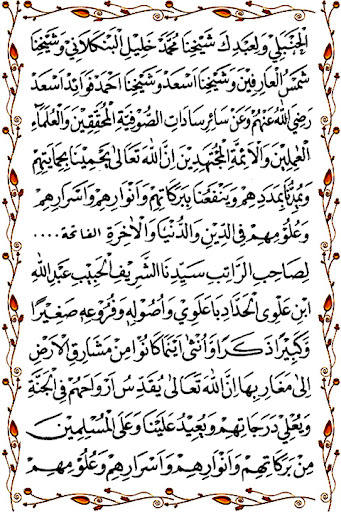 الْحَنْبَلِيْ وَلِعَبْدِكَ شَيْخِنَا مُحَمَّدْ خَلِيْلْ الْبَنْكَلَانِيْ وَشَيْخِنَا
شَمْسُ الْعَارِفِيْنَ وَشَيْخِنَا اَسْعَدْ وَشَيْخِنَا اَحْمَدْ فَوَائِدْ اَسْعَدْ
رَضِيَ اللهُ عَنْهُمْ وَعَنْ سَائِرِ سَادَاتِ الصُّوْفِيَّةِ الْمُحَقِّقِيْنَ وَالْعُلَمَاءِ
الْعٰمِلِيْنَ وَالْاَئِمَّةِ الْمُجْتَهِدِيْنَ اِنَّ اللهَ تَعَالٰى يَحْمِيْنَا بِحِمَايَتِهِمْ
وَيُمِدُّنَا بِمَدَدِهِمْ وَيَنْفَعُنَا بِبَرَكَاتِهِمْ وَاَنْوَارِهِمْ وَاَسْرَارِهِمْ
وَعُلُوْمِهِمْ فِى الدِّيْنِ وَالدُّنْيَا وَالْاٰخِرَةِ الفاتحة ....
لِصَاحِبِ الرَّاتِبِ سَيِّدِنَا الشَّرِيْفِ الْحَبِيْبِ عَبْدِ اللهِ
ابْنِ عَلْوِى الْحَدَّادِ بَاعَلَوِيْ وَاُصُوْلِهِ وَفُرُوْعِهِ صَغِيْرًا
وَكَبِيْرًا ذَكَرًا وَاُنْثٰى اَيْنَمَا كَانُوْا مِنْ مَشَارِقِ الْاَرْضِ
اِلٰى مَغَارِبِهَا اِنَّ اللهَ تَعَالٰى يُقَدِّسُ اَرْوَاحَهُمْ فِى الْجَنَّةِ
وَيُعْلِيْ دَرَجَاتِهِمْ وَيُعِيْدُ عَلَيْنَا وَعَلَى الْمُسْلِمِيْنَ
مِنْ بَرَكَاتِهِمْ وَاَنْوَارِهِمْ وَاَسْرَارِهِمْ وَعُلُوْمِهِمْ